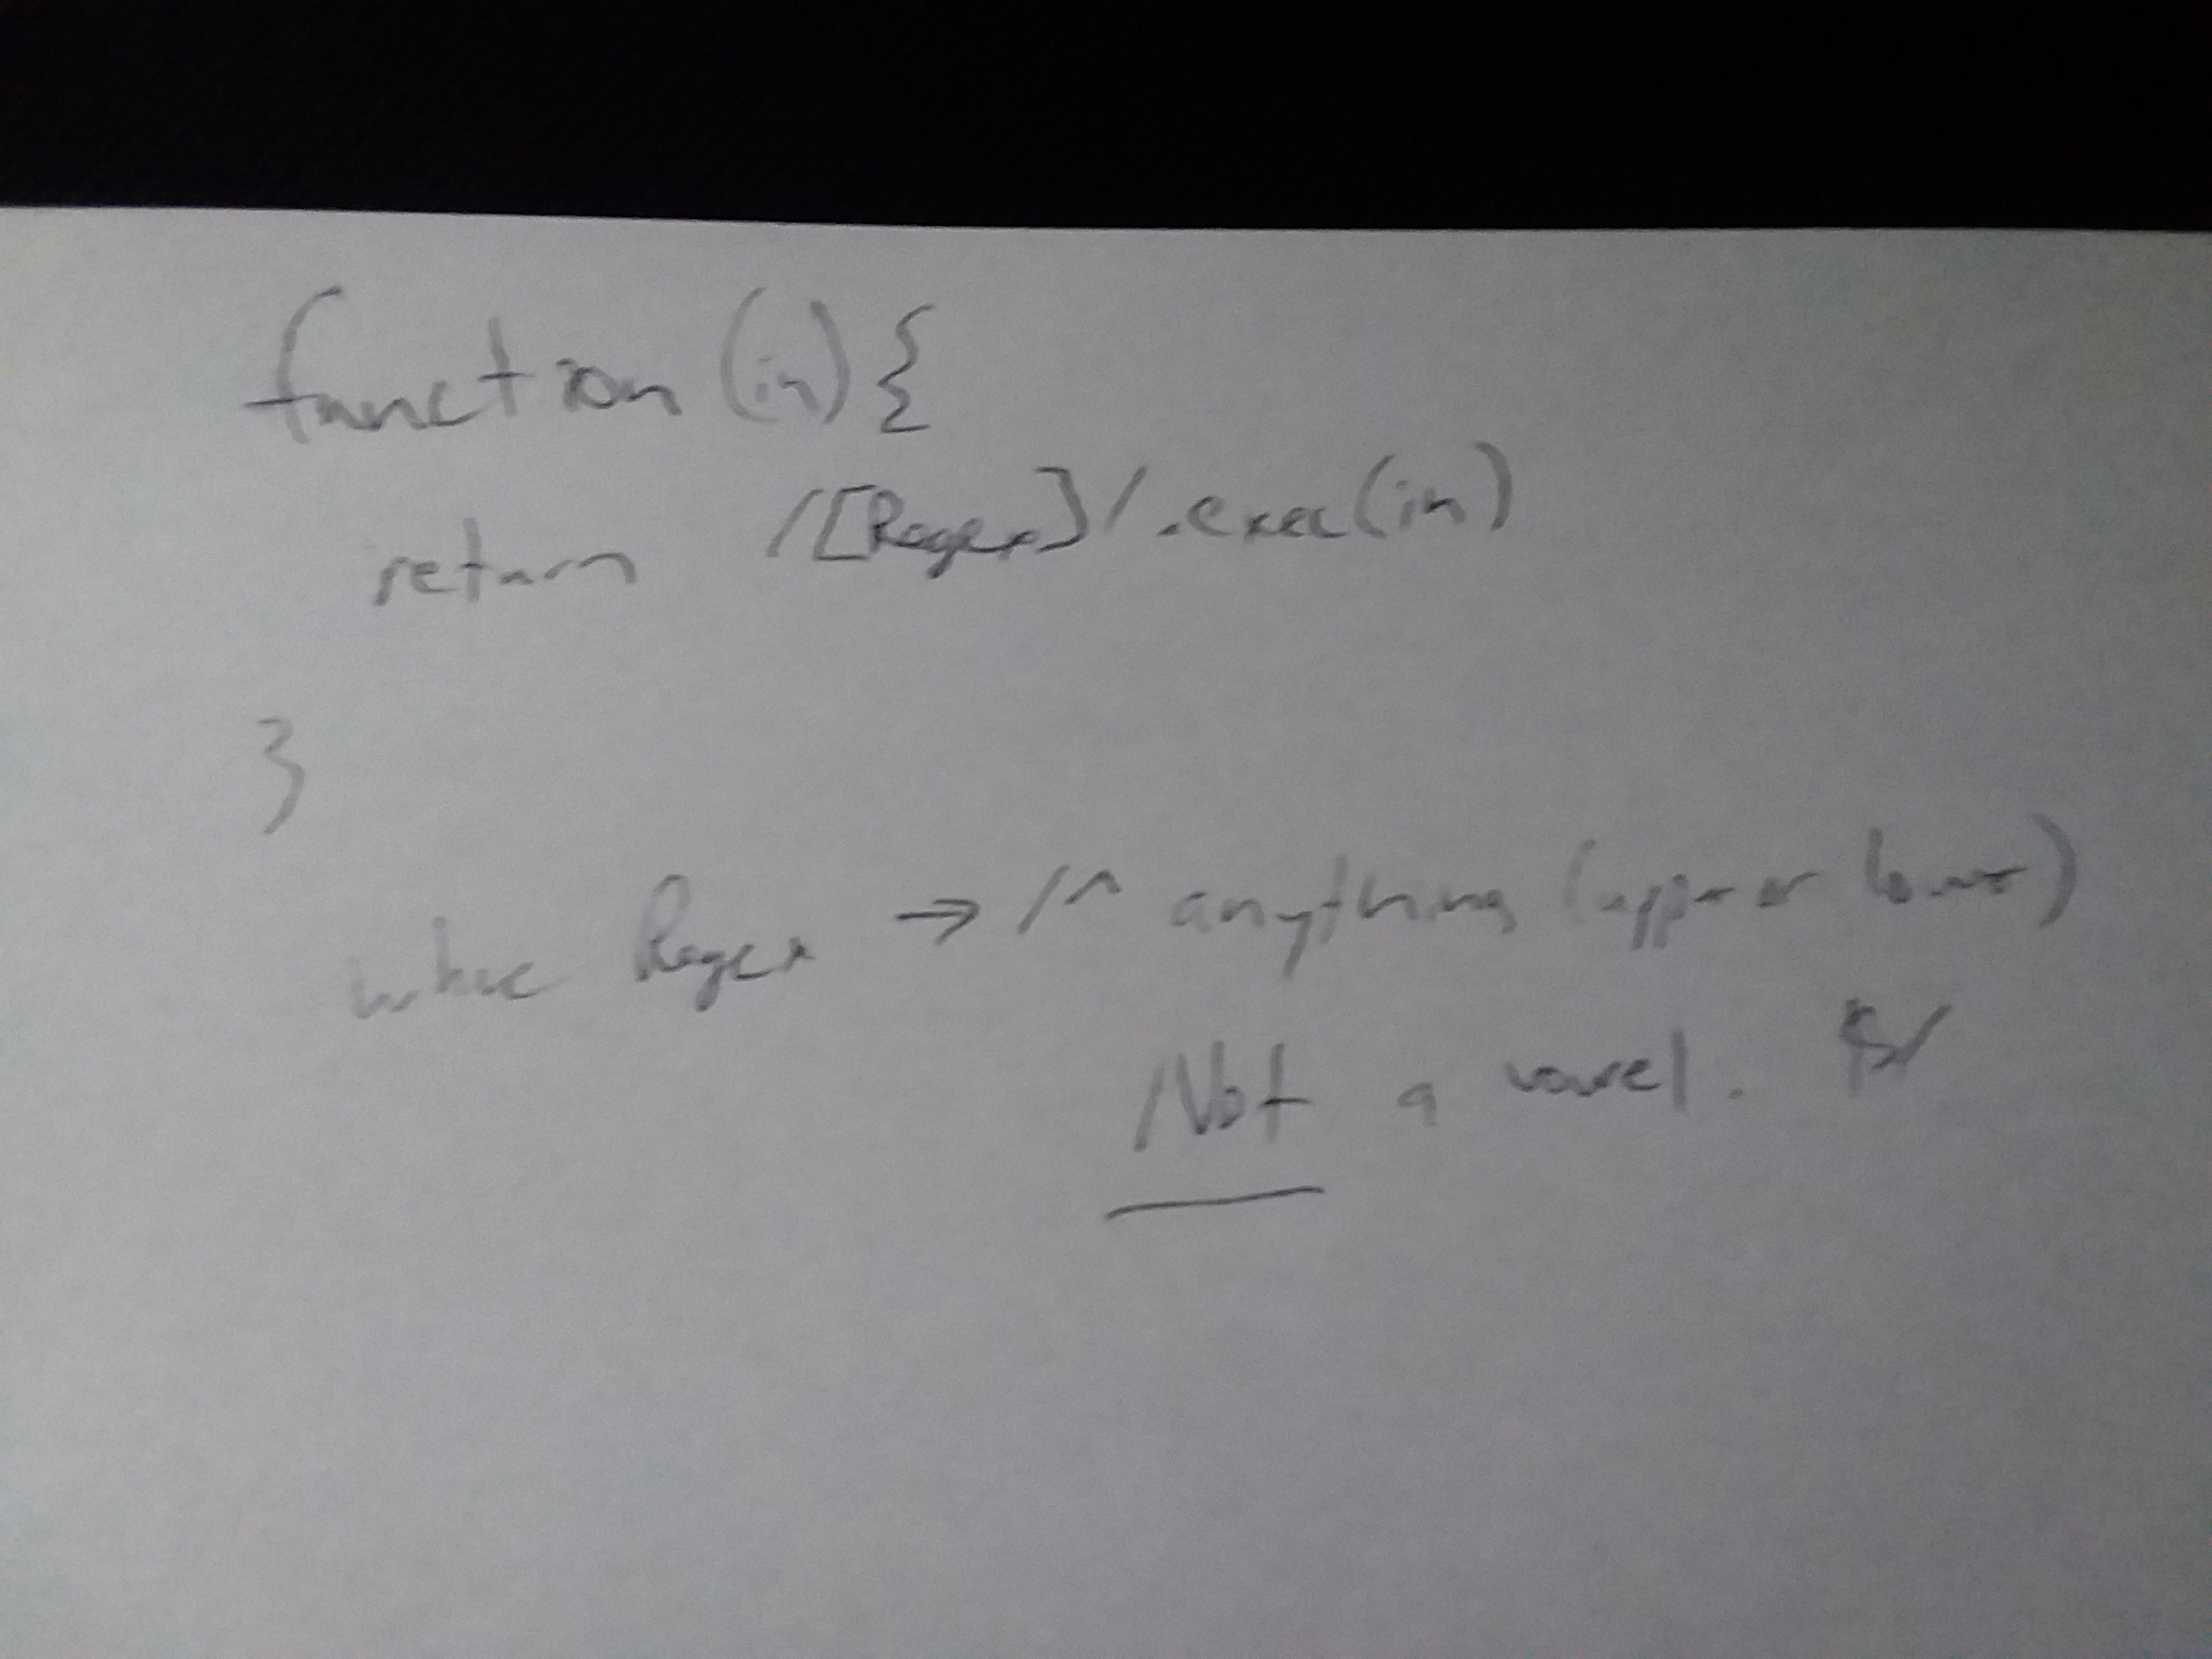 function (in) {
return /[Regex]/.exec(in)
}
where Regex → /^ anything (upper or lower)
Not a vowel. $/